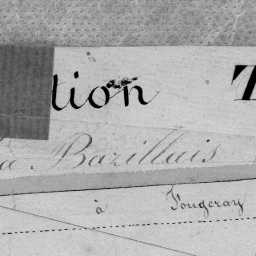 tion T
a Bazillais
à Fougeray